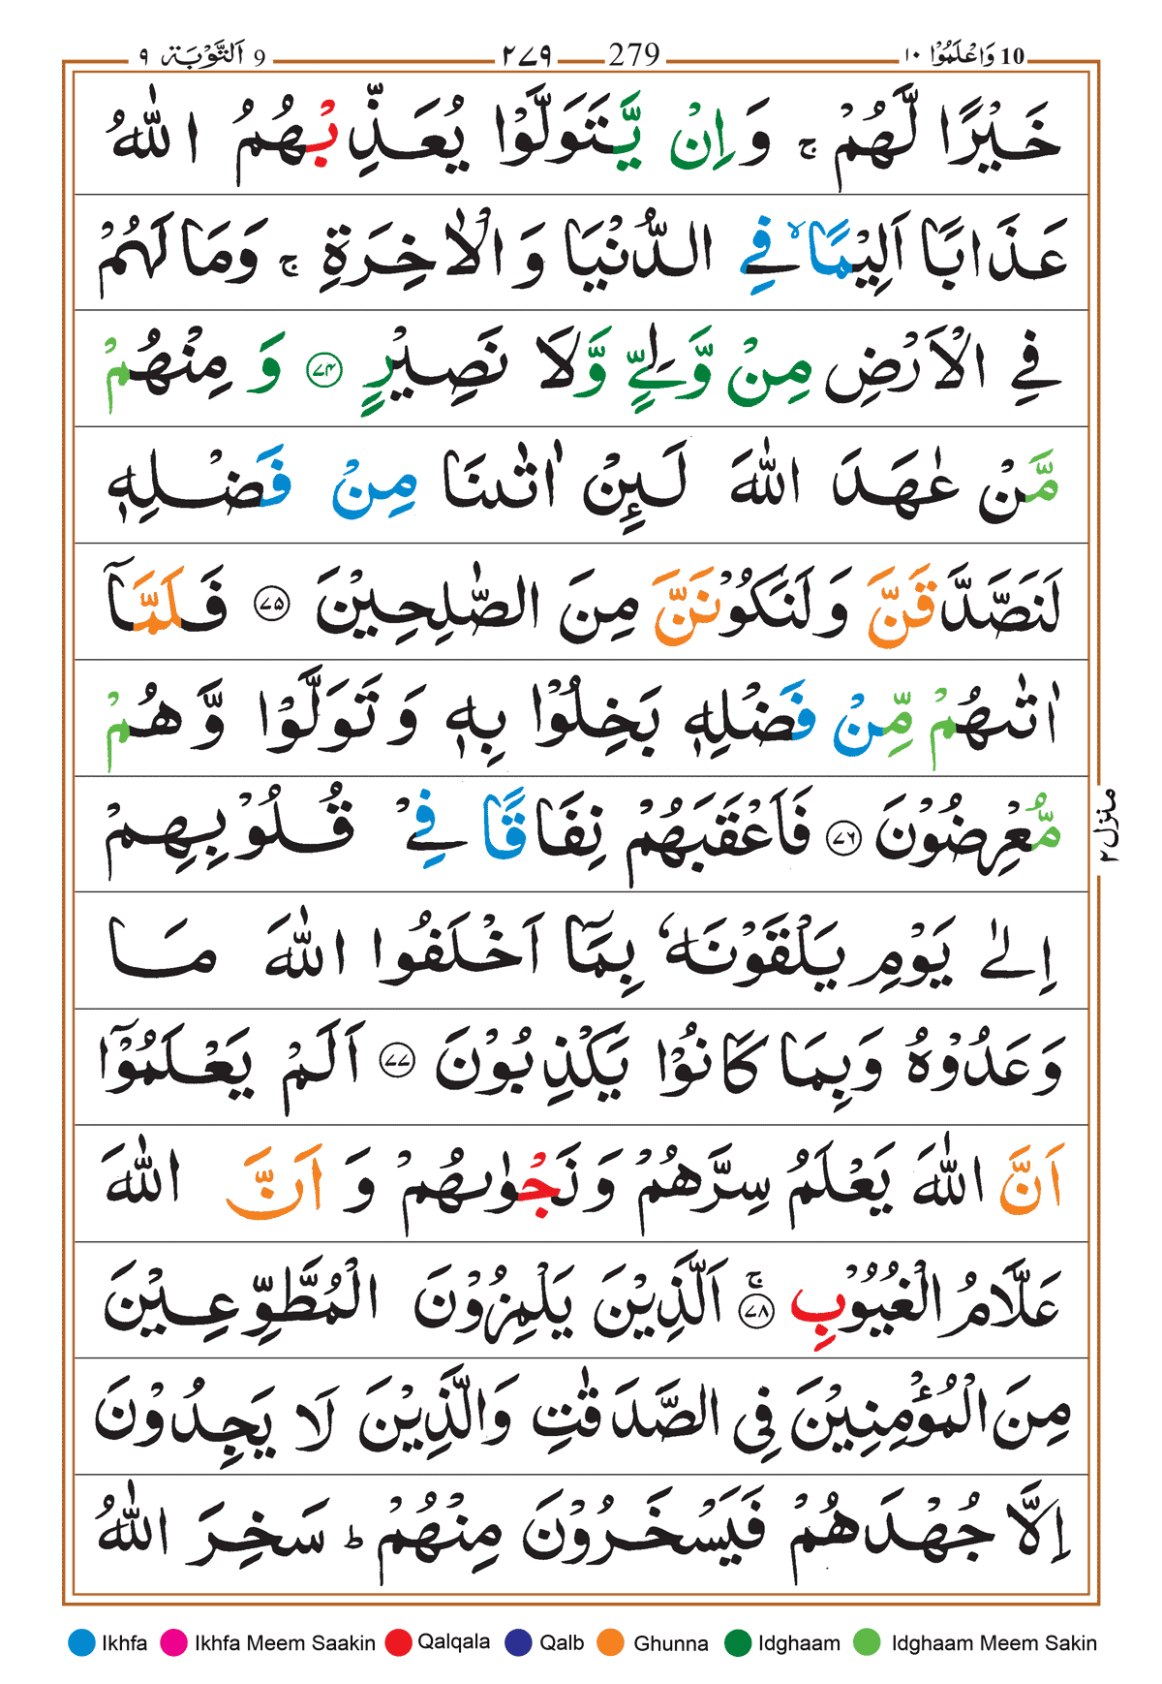 9 اَلتَّوْبَة ٩
٢٧٩ — 279
10 وَاعْلَمُوْا ١٠
خَيْرًا لَّهُمْ ۚ وَاِنْ يَّتَوَلَّوْا يُعَذِّبْهُمُ اللّٰهُ
عَذَابًا اَلِيْمًا ۙ فِي الدُّنْيَا وَالْاٰخِرَةِ ۚ وَمَا لَهُمْ
فِي الْاَرْضِ مِنْ وَّلِيٍّ وَّلَا نَصِيْرٍ ﴿٧٤﴾ وَمِنْهُمْ
مَّنْ عٰهَدَ اللّٰهَ لَىِٕنْ اٰتٰىنَا مِنْ فَضْلِهٖ
لَنَصَّدَّقَنَّ وَلَنَكُوْنَنَّ مِنَ الصّٰلِحِيْنَ ﴿٧٥﴾ فَلَمَّآ
اٰتٰىهُمْ مِّنْ فَضْلِهٖ بَخِلُوْا بِهٖ وَتَوَلَّوْا وَّهُمْ
مُّعْرِضُوْنَ ﴿٧٦﴾ فَاَعْقَبَهُمْ نِفَاقًا فِيْ قُلُوْبِهِمْ
اِلٰى يَوْمِ يَلْقَوْنَهٗ بِمَآ اَخْلَفُوا اللّٰهَ مَا
وَعَدُوْهُ وَبِمَا كَانُوْا يَكْذِبُوْنَ ﴿٧٧﴾ اَلَمْ يَعْلَمُوْٓا
اَنَّ اللّٰهَ يَعْلَمُ سِرَّهُمْ وَنَجْوٰىهُمْ وَاَنَّ اللّٰهَ
عَلَّامُ الْغُيُوْبِ ﴿٧٨﴾ ۚ اَلَّذِيْنَ يَلْمِزُوْنَ الْمُطَّوِّعِيْنَ
مِنَ الْمُؤْمِنِيْنَ فِي الصَّدَقٰتِ وَالَّذِيْنَ لَا يَجِدُوْنَ
اِلَّا جُهْدَهُمْ فَيَسْخَرُوْنَ مِنْهُمْ ؕ سَخِرَ اللّٰهُ
منزل ٢
Ikhfa Ikhfa Meem Saakin Qalqala Qalb Ghunna Idghaam Idghaam Meem Sakin